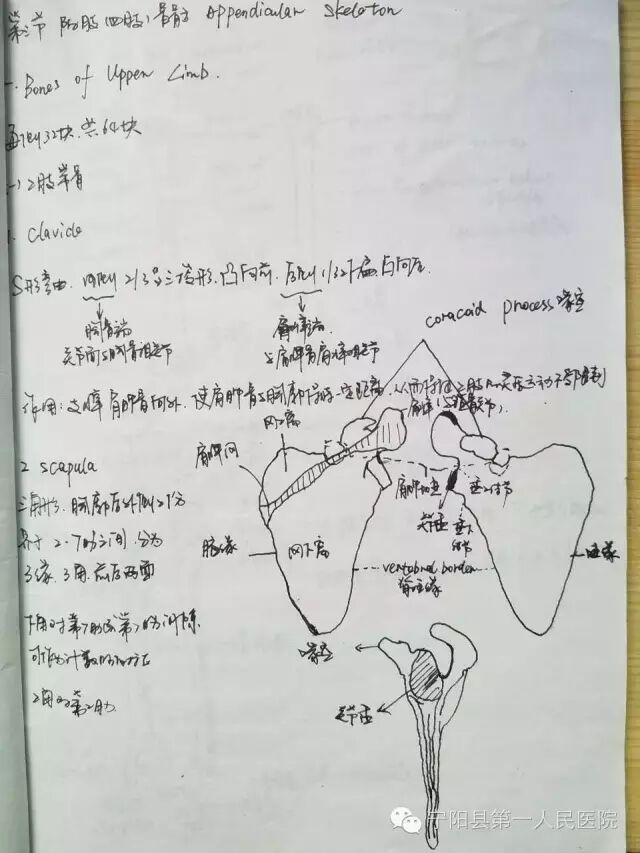 第二节 附肢(四肢)骨骼 Appendicular Skeleton
一. Bones of Upper Limb.
每侧32块.共64块
(一) 上肢带骨
1. Clavicle
S形弯曲. 内侧 2/3呈三棱形.凸向前. 外侧1/3下扁.凸向后.
胸骨端
关节面与胸骨相关节
肩峰端
与肩胛骨肩峰相关节
coracoid process 喙突
作用:支撑肩胛骨向外. 使肩胛骨与胸廓保持一定距离.
冈上窝
肩峰
肩胛冈
2 scapula
三角形. 胸廓后外侧上份
介于 2-7肋之间. 分为
3缘. 3角. 前后两面
冈下窝
关节盂
vertebral border
脊柱缘
下角对第7肋或第7肋间隙.
可作为计数的标志
上角对第2肋
喙突
关节盂
宁阳县第一人民医院